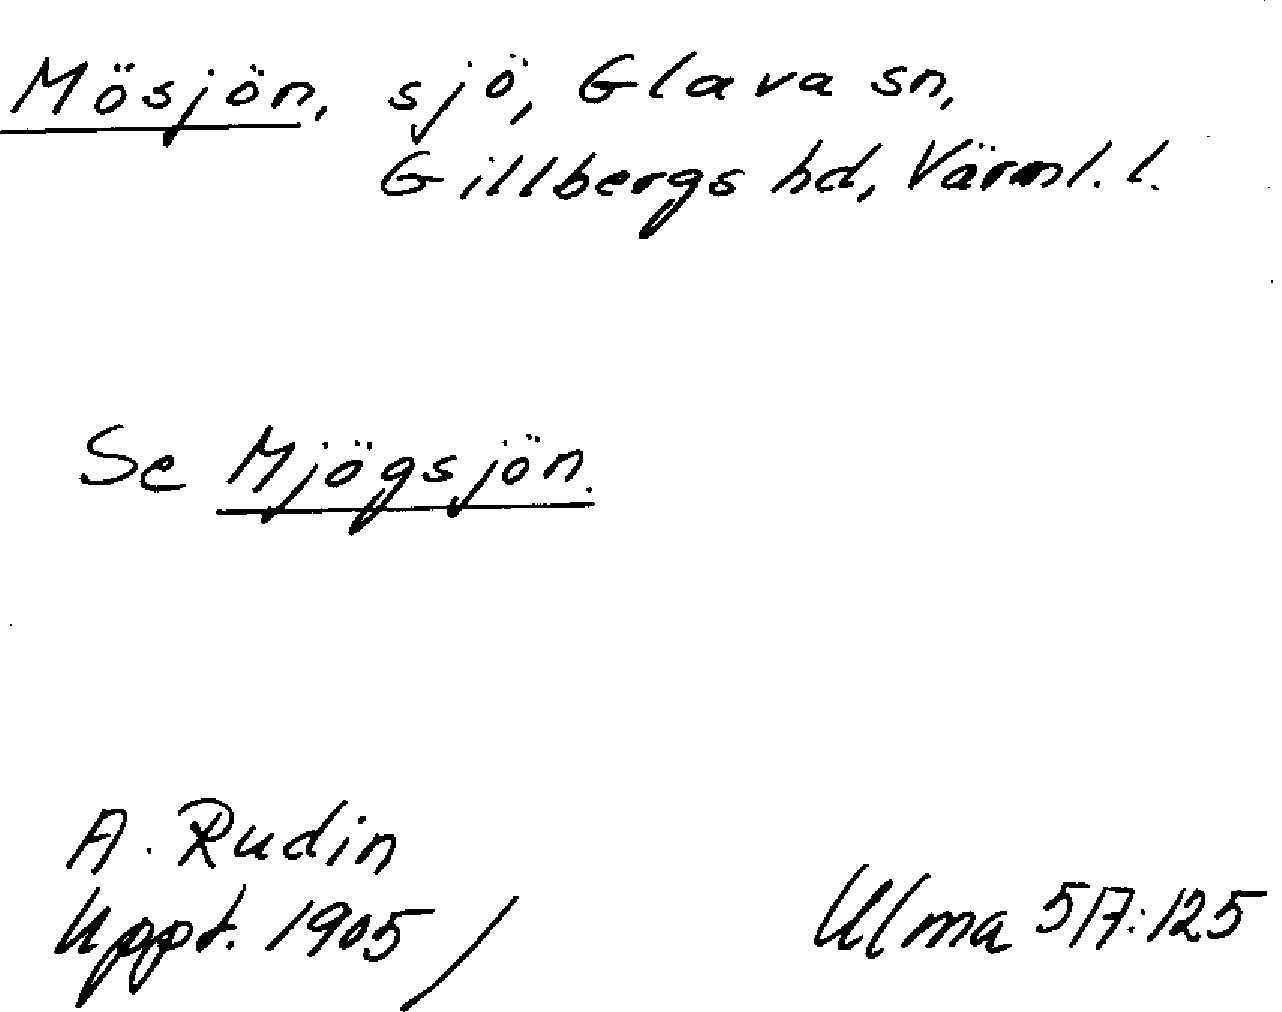 Mösjön, sjö, Glava sn,
Gillbergs hd, Värml. l.
Se Mjögsjön.
A. Rudin
Uppt. 1905 /
Ulma 517:125